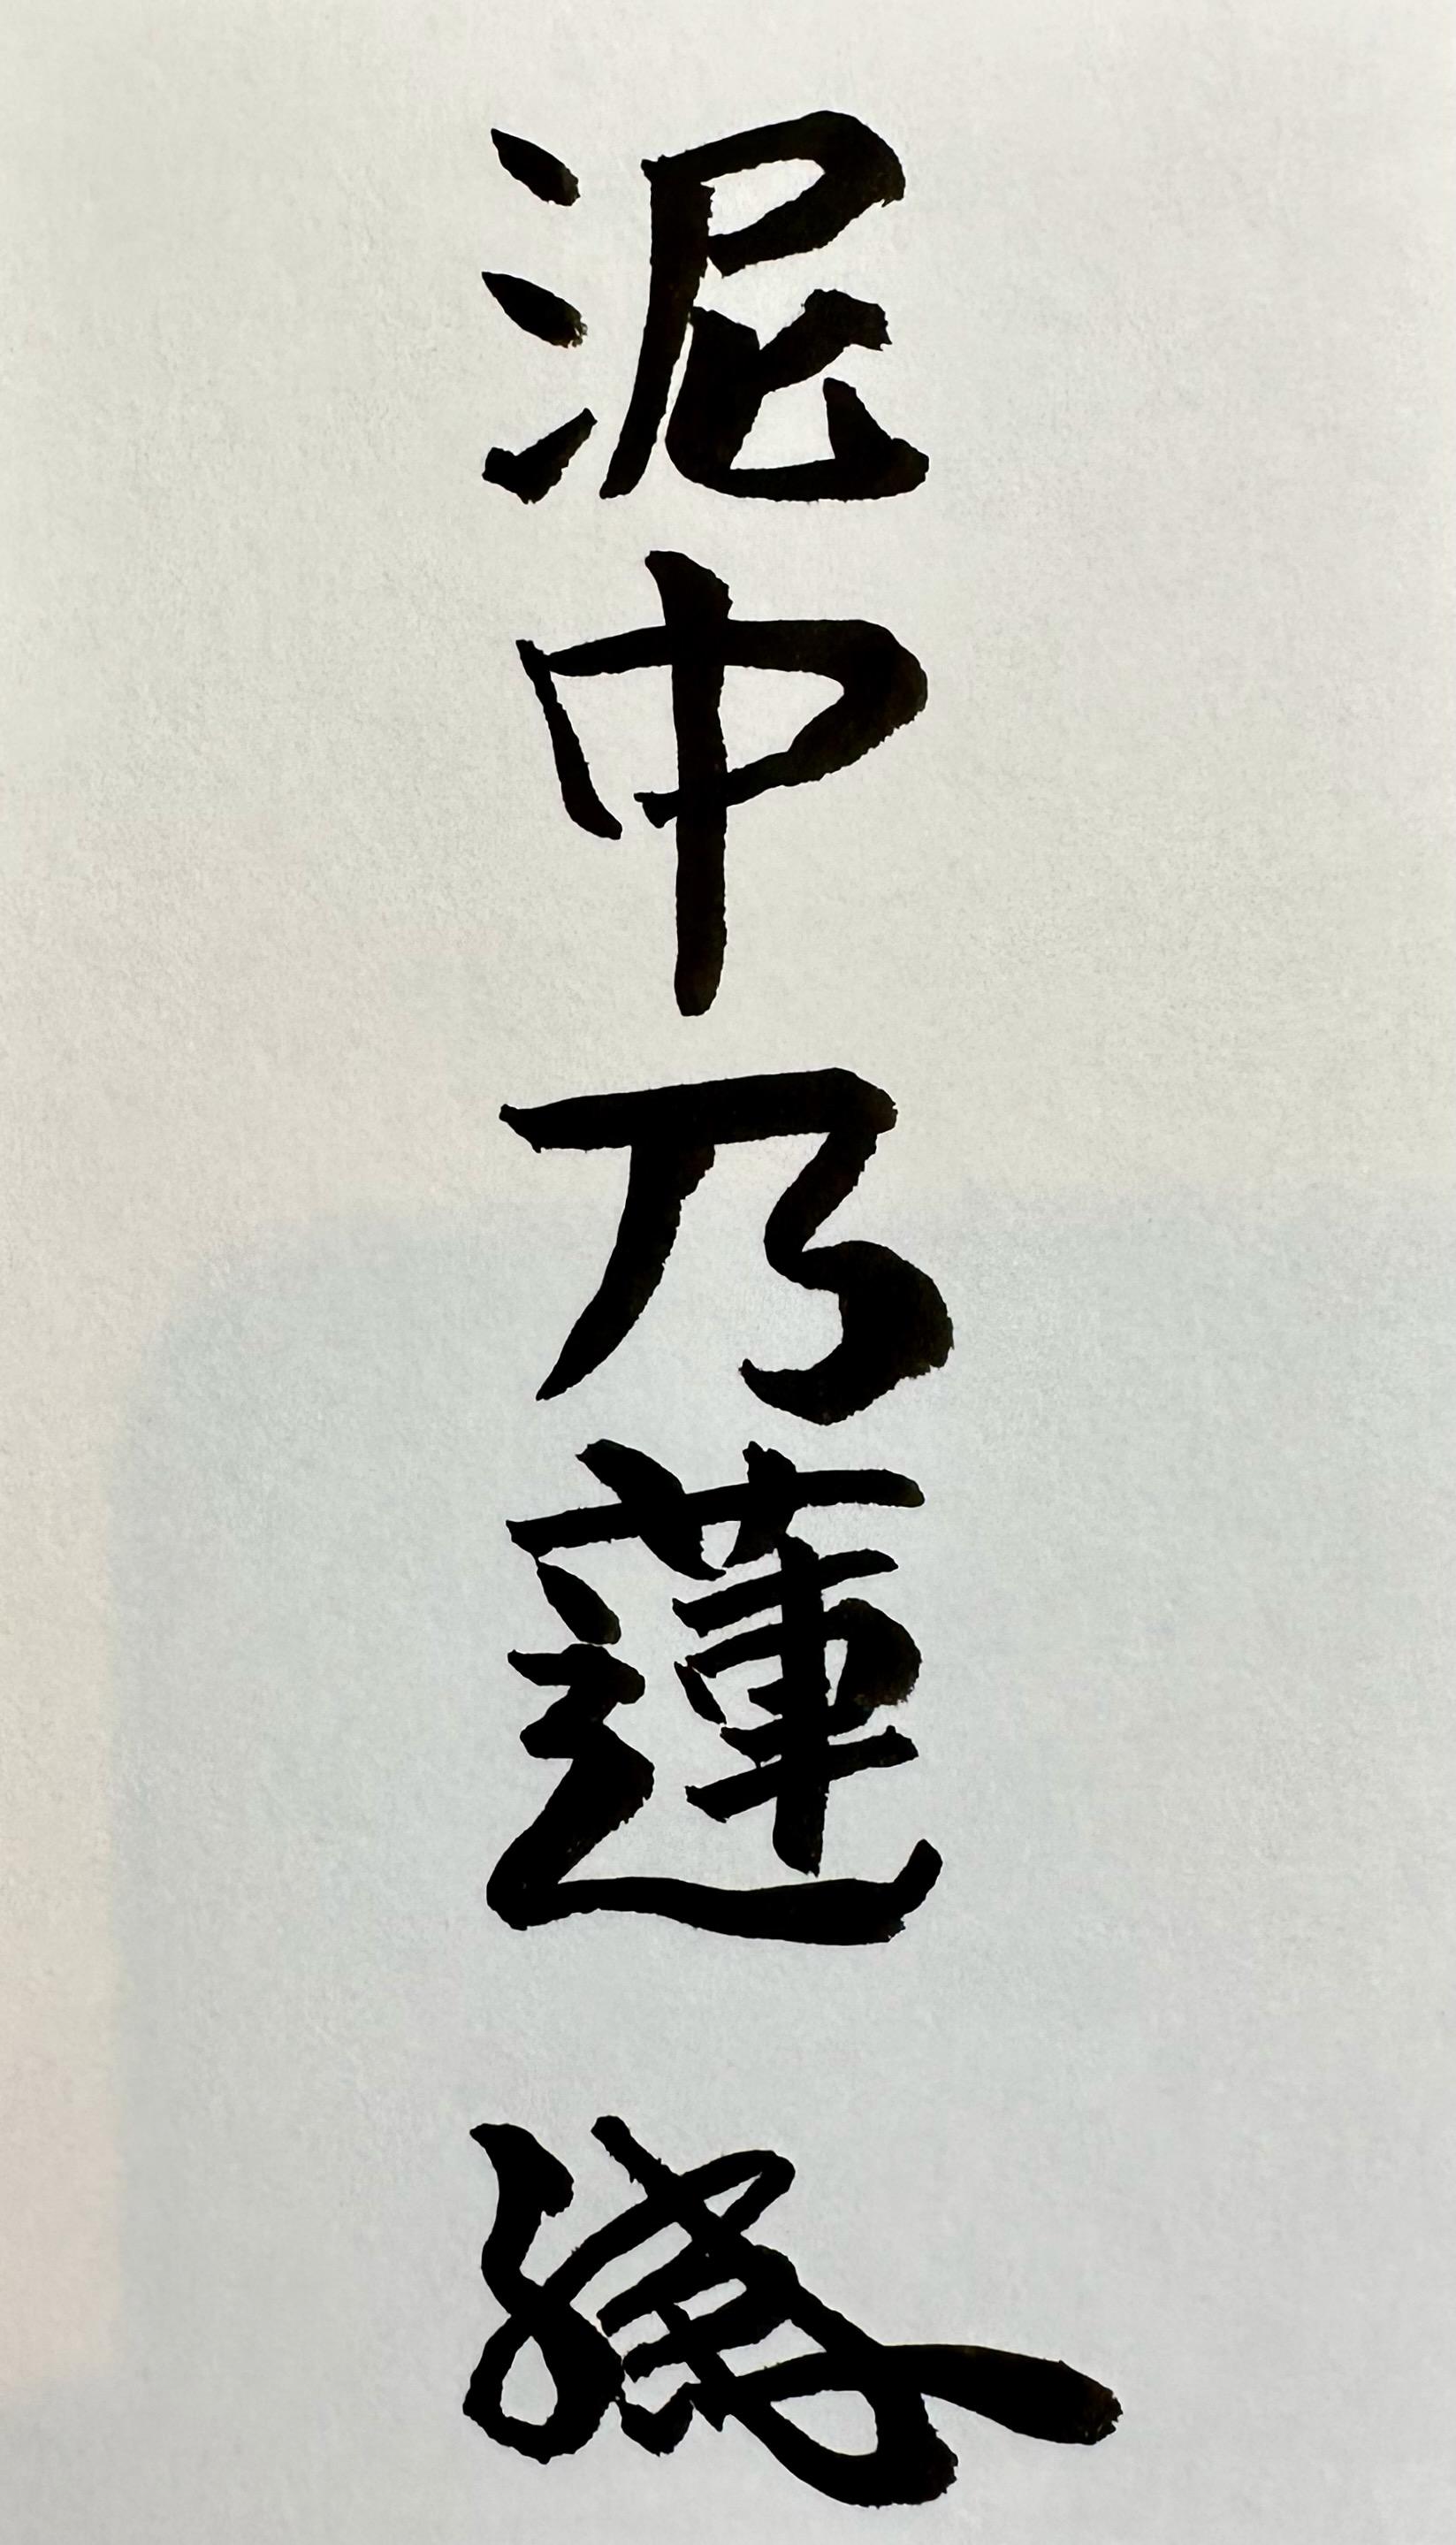 泥中乃蓮